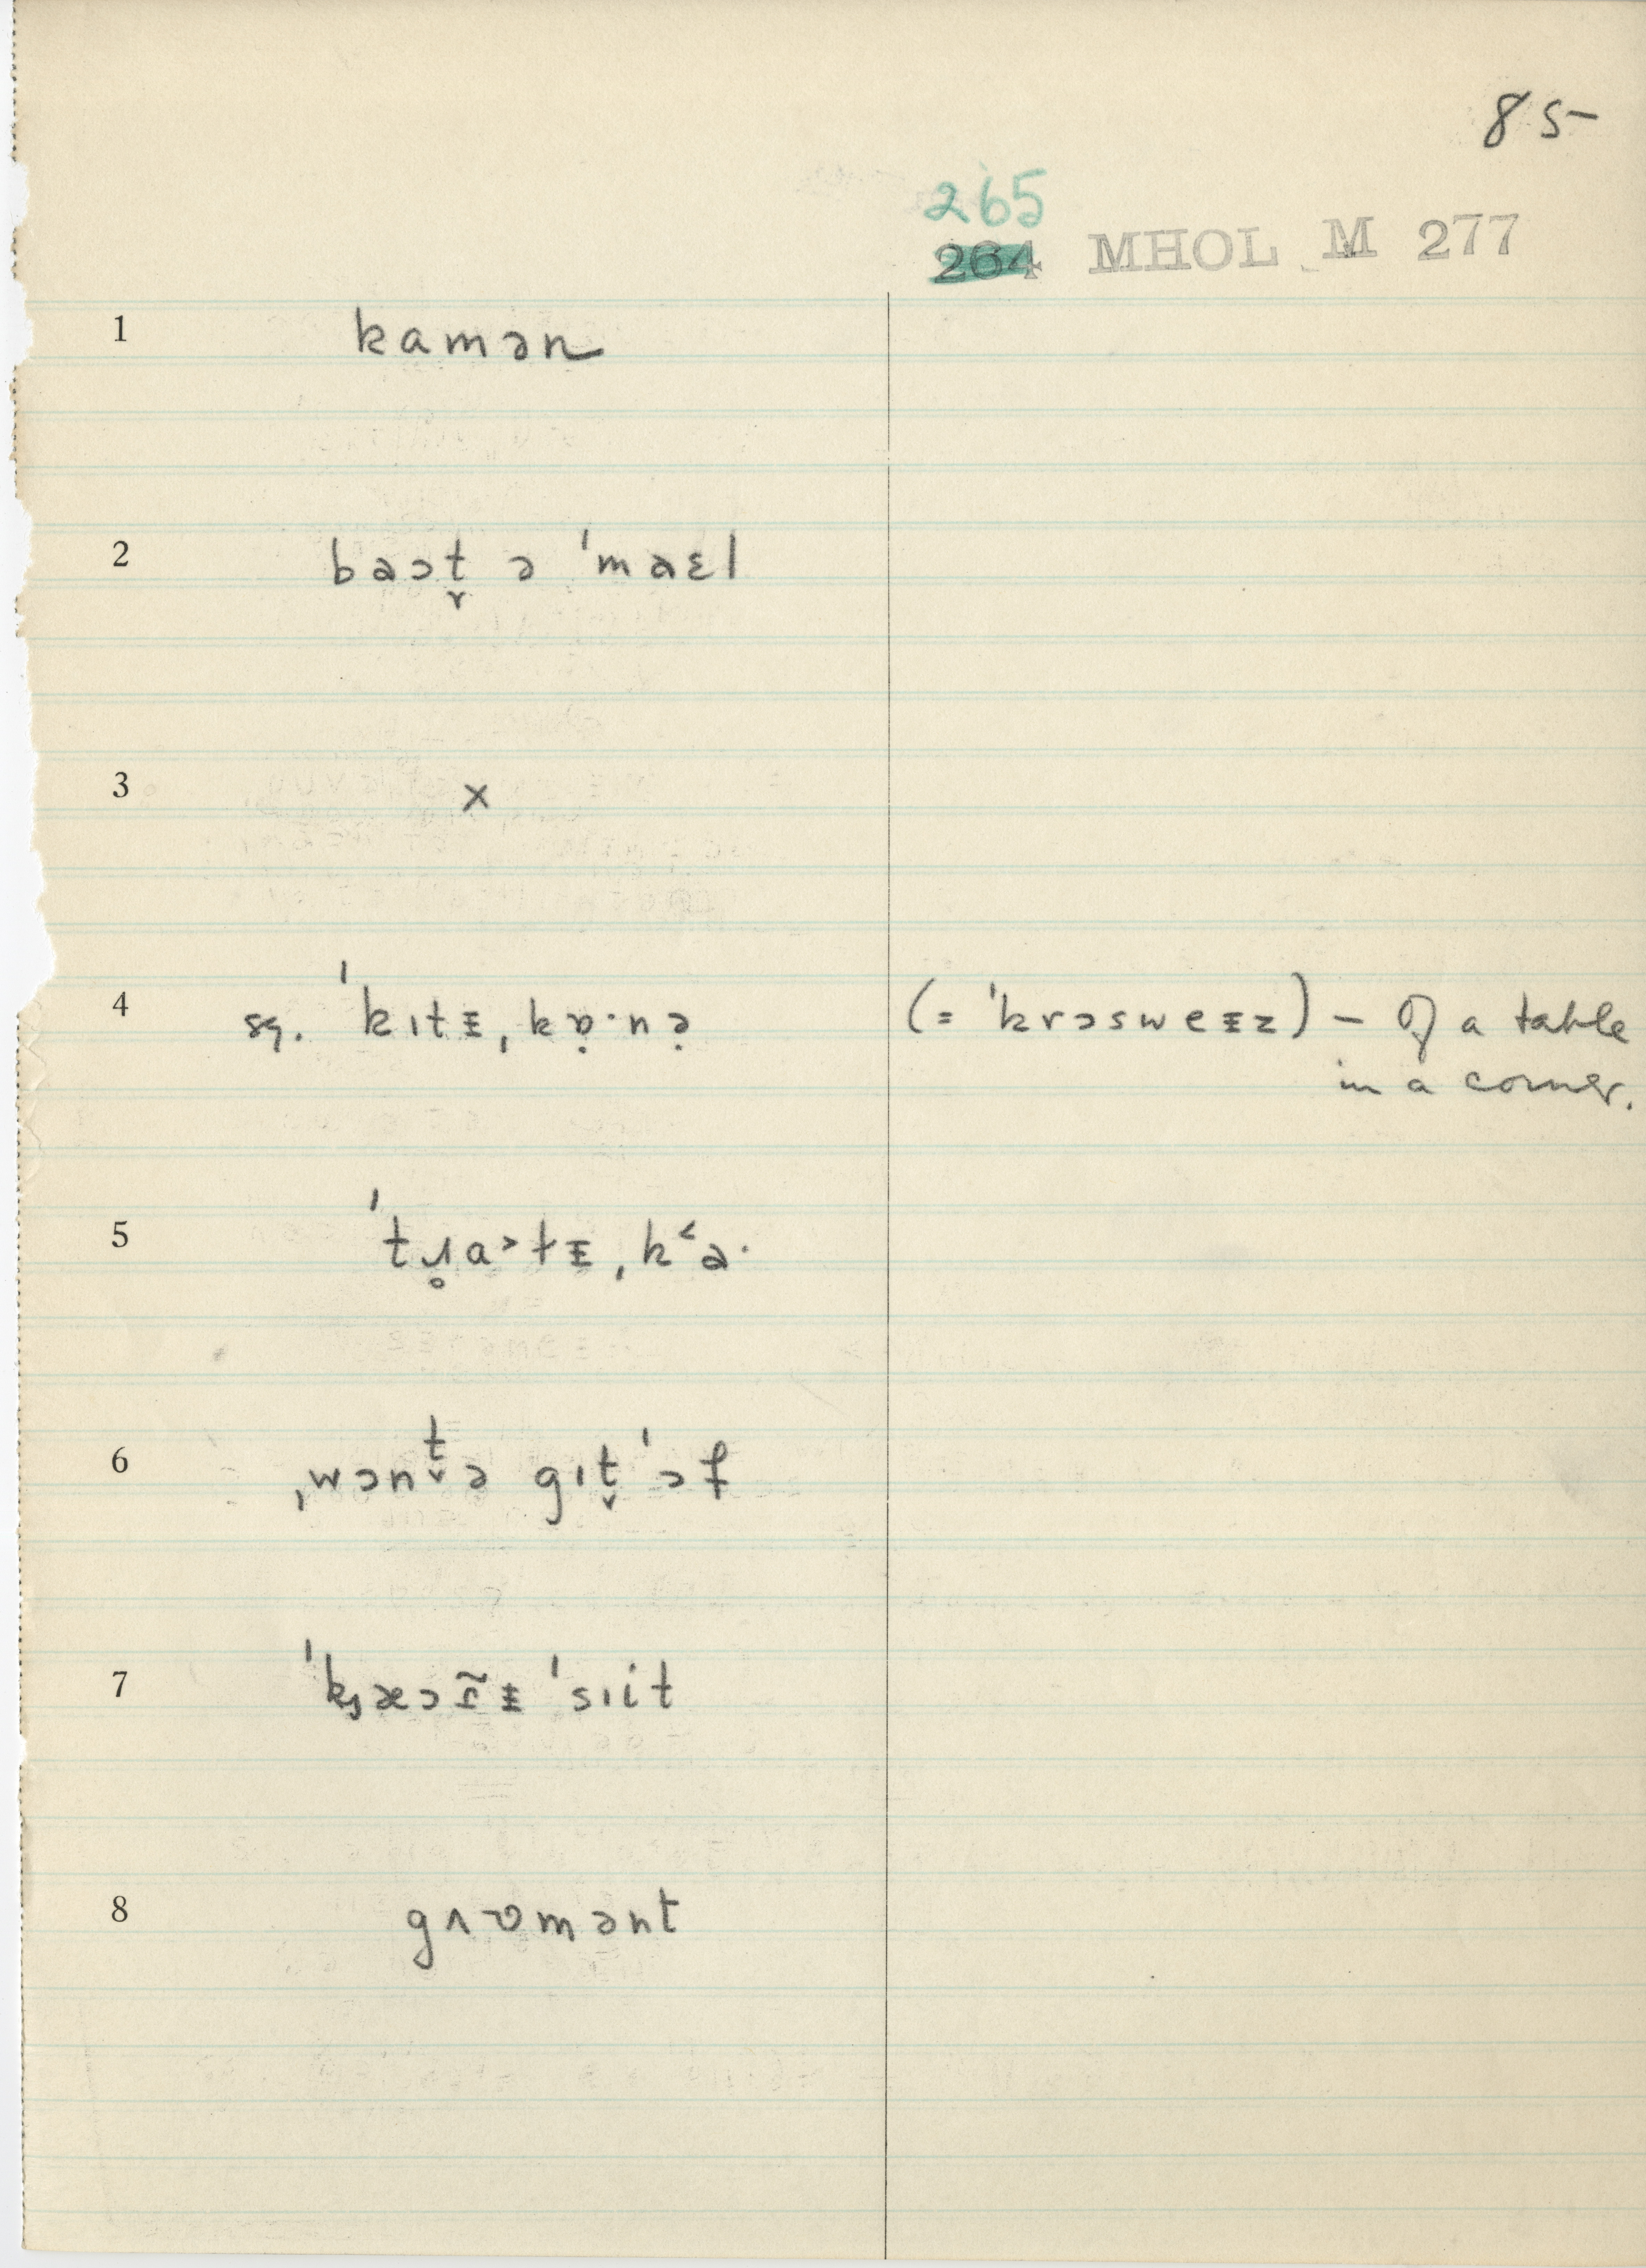 85
265
264 MHOL M 277
1 kamən
2 baɔt̬ ə ˈmaɛl
3 x
4 sq. ˈkɪtᵻ ˌkɒ̣·nə̣ (= ˈkrɔsweᵻz) – Of a table
in a corner.
5 ˈtɹ̥a˃tᵻ ˌk˂a·
6 ˌwɔnt̬ə gɪt̬ ˈɔf
7 ˈkæɔɾ̃ᵻ ˈsɪit
8 gʌʊmənt